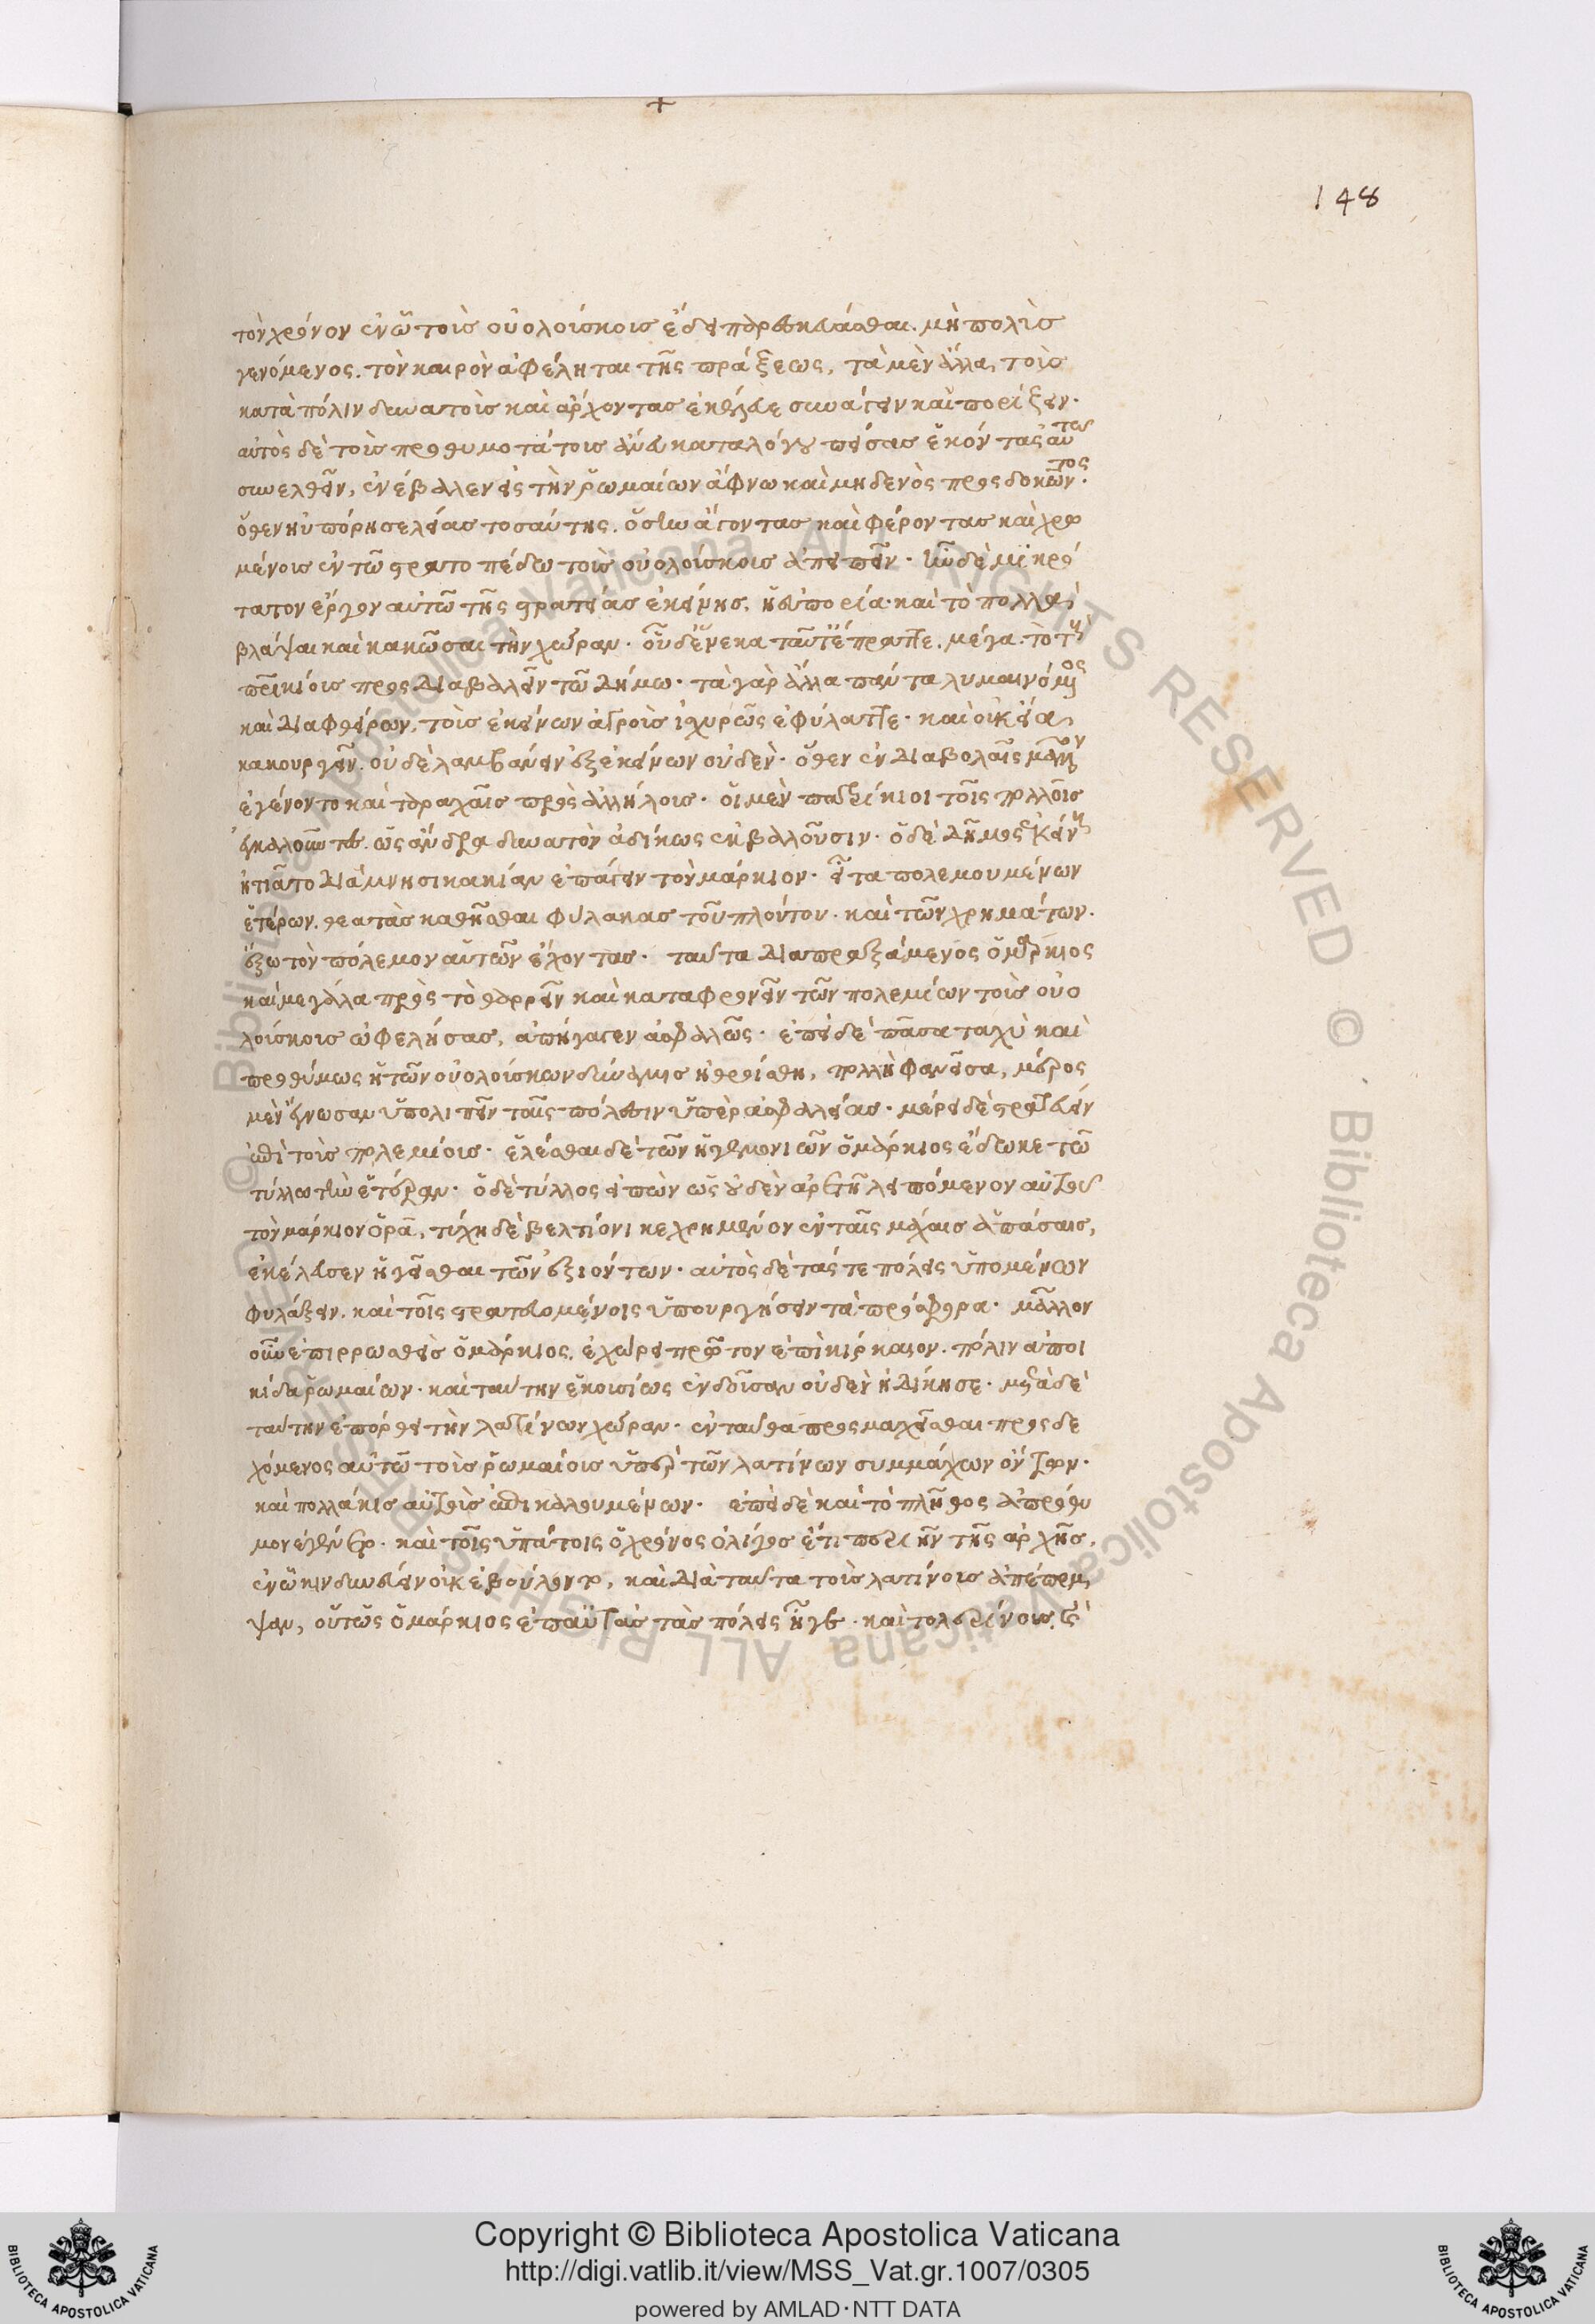 148
τὸν χρόνον ἐν ᾧ τοὶς οὐολούσκοις ἔδει παρασκευάσασθαι. μὴ πολὺς
γενόμενος. τὸν καιρὸν ἀφέληται τῆς πράξεως, τὰ μὲν ἄλλα, τοὶς
κατὰ πόλιν δυνατοὶς καὶ ἄρχοντας ἐκέλευε συνάγειν καὶ πορίζειν.
αὐτὸς δὲ τοὶς προθυμοτάτοις ἄνευ καταλόγου πείσας ἑκόντας αὐτῷ
συνελθεῖν, ἐνέβαλλεν εἰς τὴν ῥωμαίων ἄφνω καὶ μηδενὸς προσδοκῶντος.
ὅθεν ηὐπόρησε λείας τοσαύτης. ὥστε ἄγοντας καὶ φέροντας καὶ χρω
μένοις ἐν τῷ στρατοπέδῳ τοὶς οὐολούσκοις ἀπειπεῖν. ἦν δὲ μικρό
τατον ἔργον αὐτῷ τῆς στρατείας ἐκείνης. ἡ εὐπορία. καὶ τὸ πολλὰ
βλάψαι καὶ κακῶσαι τὴν χώραν. οὗ δ' ἕνεκα ταῦτ' ἔπραττε. μέγα. τὸ τοὺς
πατρικίοις προσδιαβαλεῖν τῷ δήμῳ. τὰ γὰρ ἄλλα πάντα λυμαινόμενος
καὶ διαφθείρων, τοὶς ἐκείνων ἀγροὶς ἰσχυρῶς ἐφύλαττε. καὶ οὐκ εἴα,
κακουργεῖν. οὐδὲ λαμβάνειν ἐξ ἐκείνων οὐδέν. ὅθεν ἐν διαβολαῖς μᾶλλον
ἐγένοντο καὶ ταραχαῖς πρὸς ἀλλήλοις. οἱ μὲν πατρίκιοι τοῖς πολλοῖς
ἐγκαλοῦντες. ὡς ἄνδρα δυνατὸν ἀδίκως ἐκβαλοῦσιν. ὁ δὲ δῆμος ἐκείνους
ᾐτιᾶτο διὰ μνησικακίαν ἐπάγειν τὸν μάρκιον. εἶτα πολεμουμένων
ἑτέρων. θεατὰς καθῆσθαι φύλακας τοῦ πλούτου. καὶ τῶν χρημάτων.
ἔξω τὸν πόλεμον αὐτῶν ἔχοντας. ταῦτα διαπραξάμενος ὁ μάρκιος
καὶ μεγάλα πρὸς τὸ θαρρεῖν καὶ καταφρονεῖν τῶν πολεμίων τοὶς οὐο
λούσκοις ὠφελήσας, ἀπήγαγεν ἀσφαλῶς. ἐπεὶ δὲ πᾶσα ταχὺ καὶ
προθύμως ἡ τῶν οὐολούσκων δύναμις ἠθροίσθη, πολλὴ φανεῖσα, μέρος
μὲν ἔγνωσαν ὑπολιπεῖν ταῖς πόλεσιν ὑπὲρ ἀσφαλείας. μέρει δὲ στρατεύειν
ἐπὶ τοὶς πολεμίοις. ἑλέσθαι δὲ τῶν ἡγεμονιῶν ὁ μάρκιος ἔδωκε τῷ
τύλλῳ τὴν ἑτέραν. ὁ δὲ τύλλος εἰπὼν ὡς οὐδὲν ἀρετῇ λειπόμενον αὐτοῦ
τὸν μάρκιον ὁρᾷ, τύχῃ δὲ βελτίονι κεχρημένον ἐν ταῖς μάχαις ἁπάσαις,
ἐκέλευσεν ἡγεῖσθαι τῶν ἐξιόντων. αὐτὸς δὲ τάς τε πόλεις ὑπομένων
φυλάξειν. καὶ τοῖς στρατευομένοις ὑπουργήσειν τὰ πρόσφορα. μᾶλλον
οὖν ἐπιρρωσθεὶς ὁ μάρκιος, ἐχώρει πρῶτον ἐπὶ κίρκαιον. πόλιν ἀποι
κίδα ῥωμαίων. καὶ ταύτην ἑκουσίως ἐνδοῦσαν οὐδὲν ἠδίκησε. μετὰ δὲ
ταύτην ἐπόρθει τὴν λατίνων χώραν. ἐνταῦθα προσμαχεῖσθαι προσδε
χόμενος αὐτῷ τοὶς ῥωμαίοις ὑπὲρ τῶν λατίνων συμμάχων ὄντων.
καὶ πολλάκις αὐτοὺς ἐπικαλουμένων. ἐπεὶ δὲ καὶ τὸ πλῆθος ἀπρόθυ
μον ἐγένετο. καὶ τοῖς ὑπάτοις ὁ χρόνος ὀλίγος ἔτι περιῆν τῆς ἀρχῆς,
ἐν ᾧ κινδυνεύειν οὐκ ἐβούλοντο, καὶ διὰ ταῦτα τοὶς λατίνοις ἀπέπεμ
ψαν, οὕτως ὁ μάρκιος ἐπ' αὐτὰς τὰς πόλεις ἦγε. καὶ τολερίνοις, καὶ
Copyright © Biblioteca Apostolica Vaticana
http://digi.vatlib.it/view/MSS_Vat.gr.1007/0305
powered by AMLAD·NTT DATA